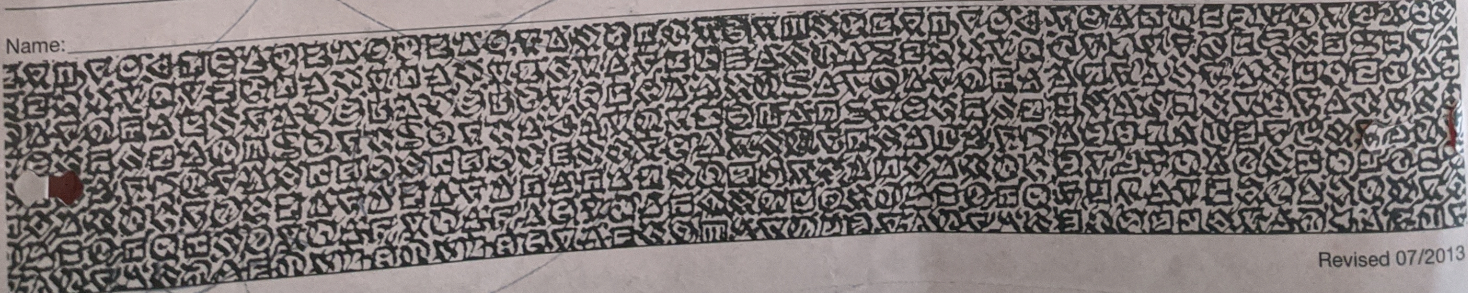 Name:
Revised 07/2013